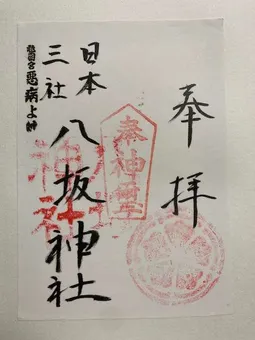 奉拝
日本
三社
八坂神社
悪病よけ